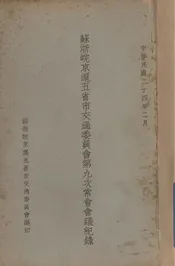 中華民國二十四年二月
蘇浙皖京滬五省市交通委員會第九次常會會議紀錄
蘇浙皖京滬五省市交通委員會編印